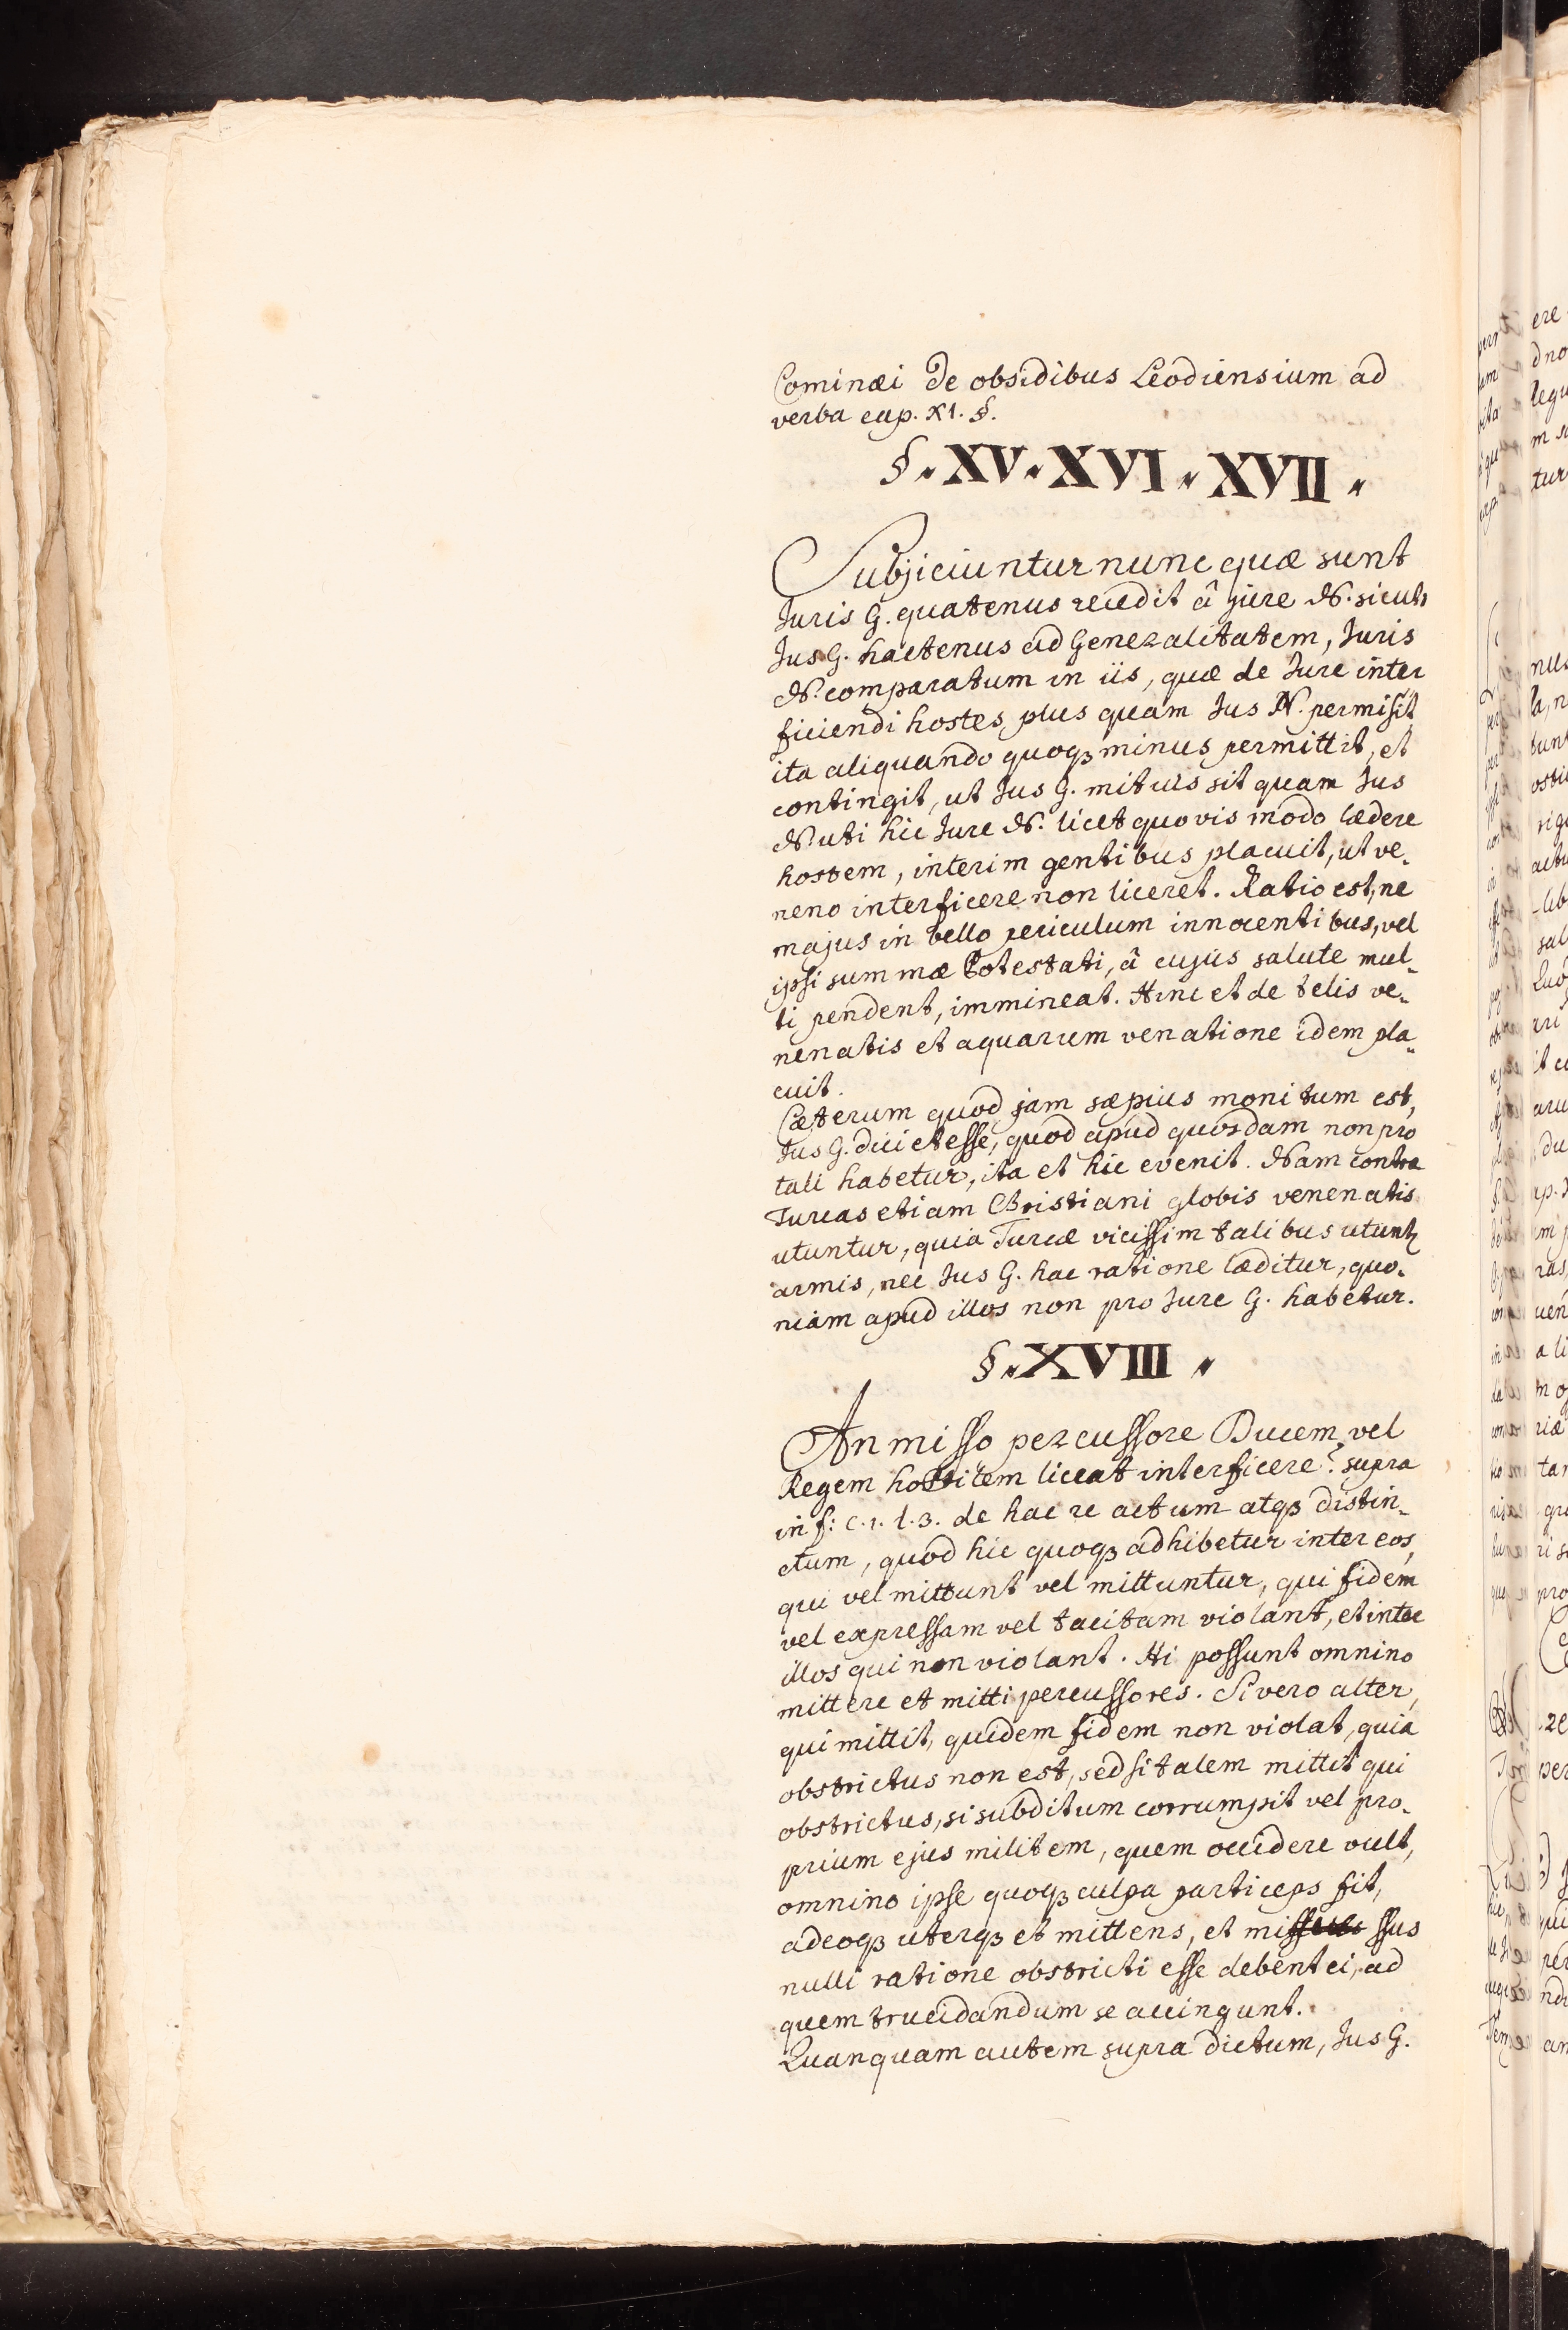 Cominæi de obsidibus Leodiensium ad
verba cap. XI. §.
§. XV. XVI. XVII.
Subjiciuntur nunc quæ sunt
Juris G. quatenus recedit â jure N. sicuti
Jus G. hactenus ad Generalitatem, Juris
N. comparatum in iis, quæ de Jure inter
ficiendi hostes, plus quam Jus N. permisit
ita aliquando quoqꝫ minus permittit, et
contingit, ut Jus G. mitius sit quam Jus
N. uti hic Jure N. licet quovis modo lædere
hostem, interim gentibus placuit, ut ve„
neno interficere non liceret. Ratio est, ne
majus in bello periculum innocentibus, vel
ipsi summæ Potestati, â cujus salute mul„
ti pendent, immineat. Hinc et de telis ve„
nenatis et aquarum venatione idem pla„
cuit.
Cæterum quod jam sæpius monitum est,
Jus G. dici et esse, quod apud quosdam non pro
tali habetur, ita et hic evenit. Nam contra
Turcas etiam Christiani globis venenatis
utuntur, quia Turcæ vicissim talibus utunt
armis, nec Jus G. hac ratione læditur, quo„
niam apud illos non pro Jure G. habetur.
§. XVIII.
An misso percussore Ducem vel
Regem hostilem liceat interficere? supra
in f: c. 1. l. 3. de hac re actum atqꝫ distin„
ctum, quod hic quoqꝫ adhibetur inter eos,
qui vel mittunt vel mittuntur, qui fidem
vel expressam vel tacitam violant, et inter
illos qui non violant. Hi possunt omnino
mittere et mitti percussores. Si vero alter,
qui mittit, quidem fidem non violat, quia
obstrictus non est, sed si talem mittit qui
obstrictus, si subditum corrumpit vel pro„
prium ejus militem, quem occidere vult,
omnino ipse quoqꝫ culpa particeps fit,
adeoqꝫ uterqꝫ et mittens, et mi ssus
nulli ratione obstricti esse debent ei, ad
quem trucidandum se accingunt.
Quanquam autem supra dictum, Jus G.